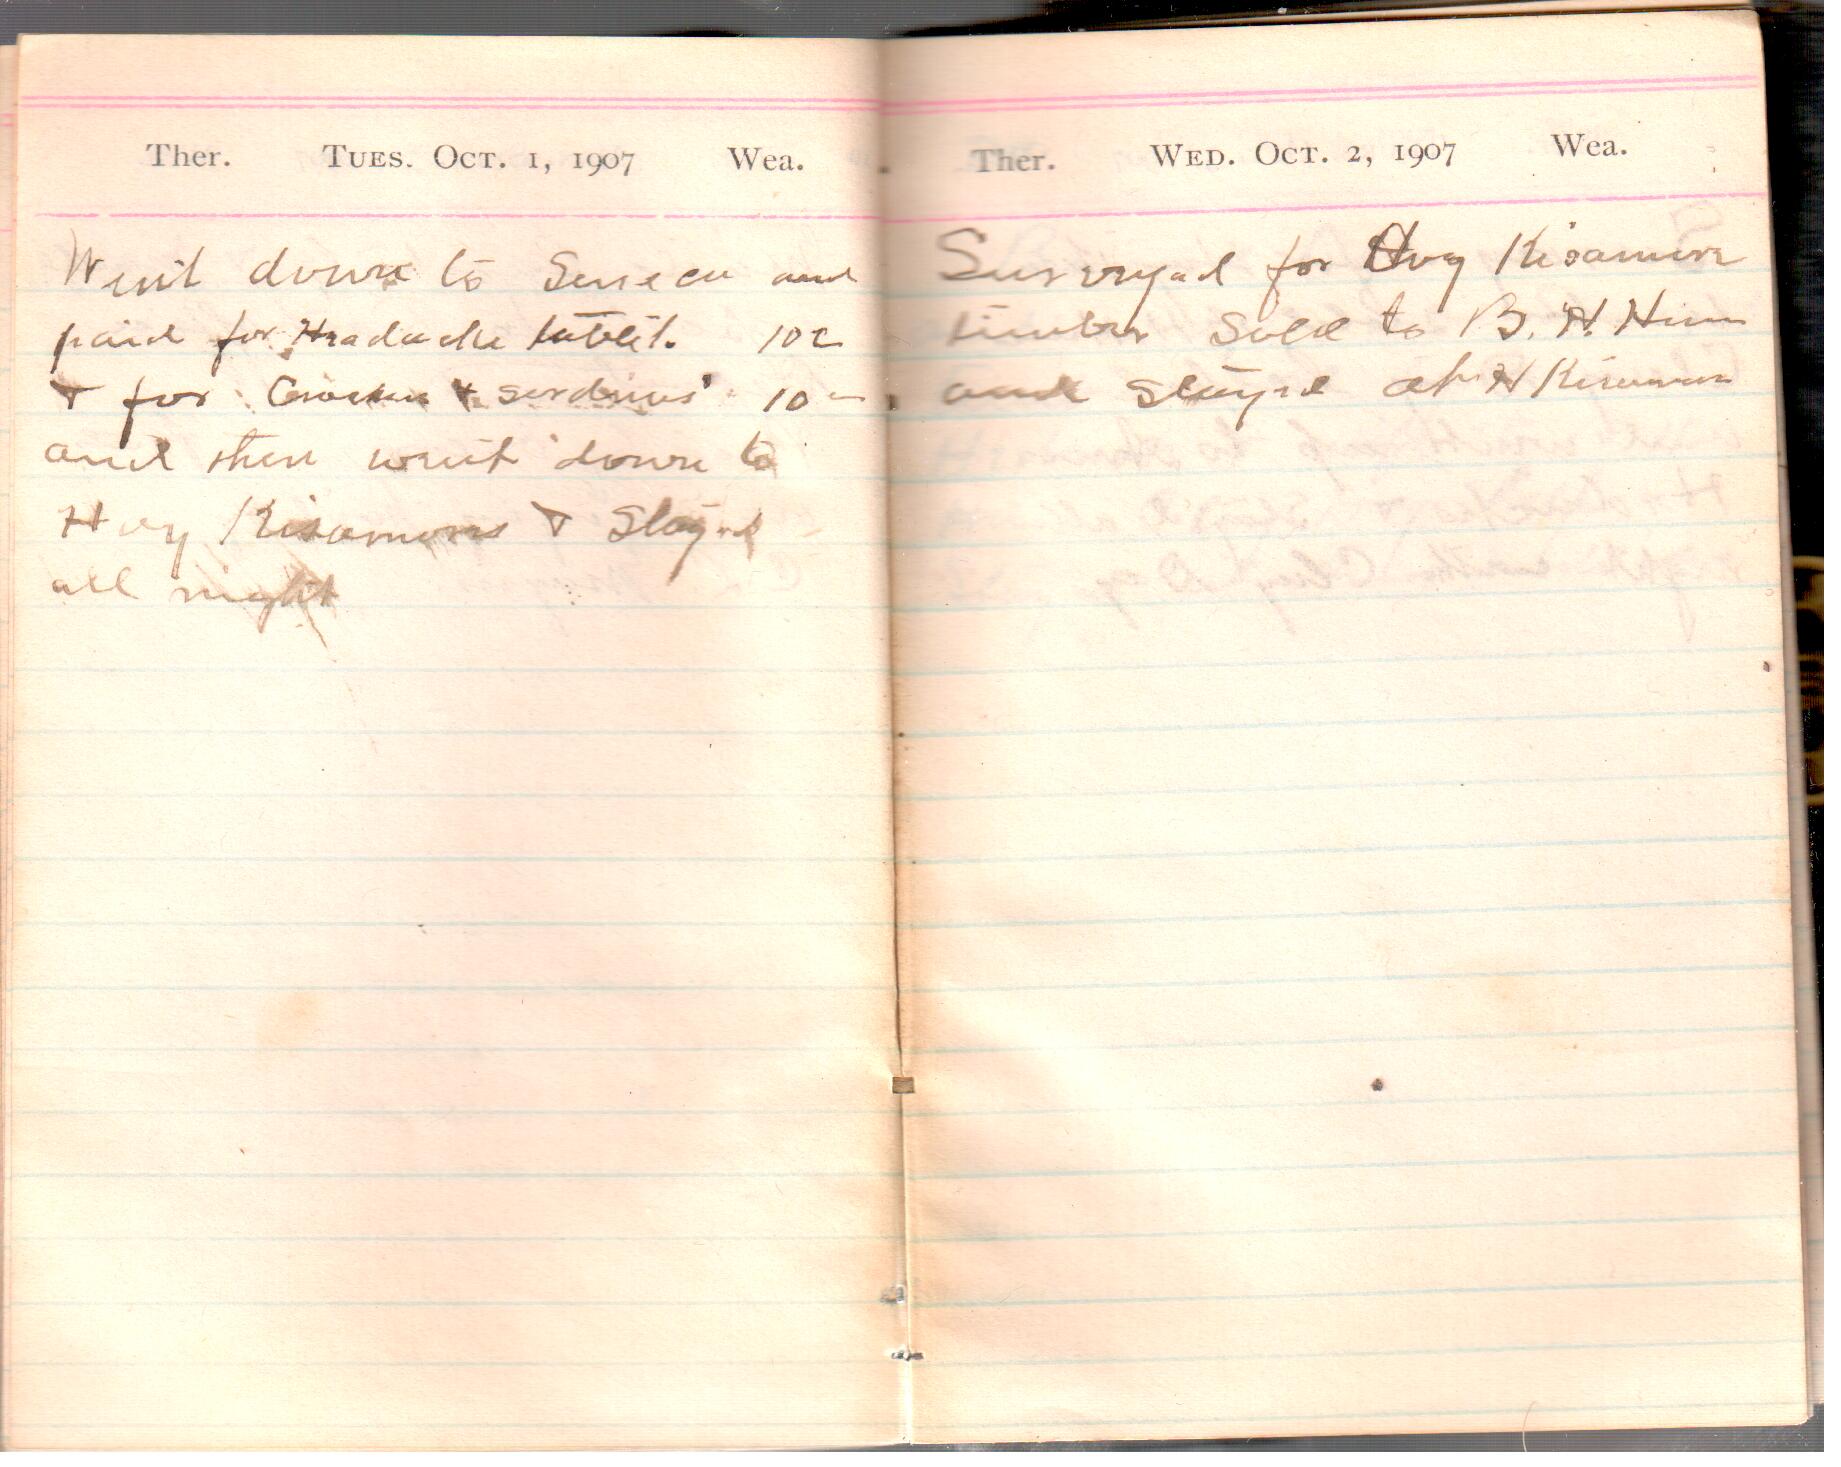 Ther. Tues. Oct. 1, 1907 Wea.
Went down to Seneca and
paid for Headache tablet. 10c
& for Cracker & serdines 10
and then went down to
Hoy Kisamors & Stayed
all night
Ther. Wed. Oct. 2, 1907 Wea.
Surveyed for Hoy Kisamore
timber Sold to B. H.
and Stayed at H Kisamore